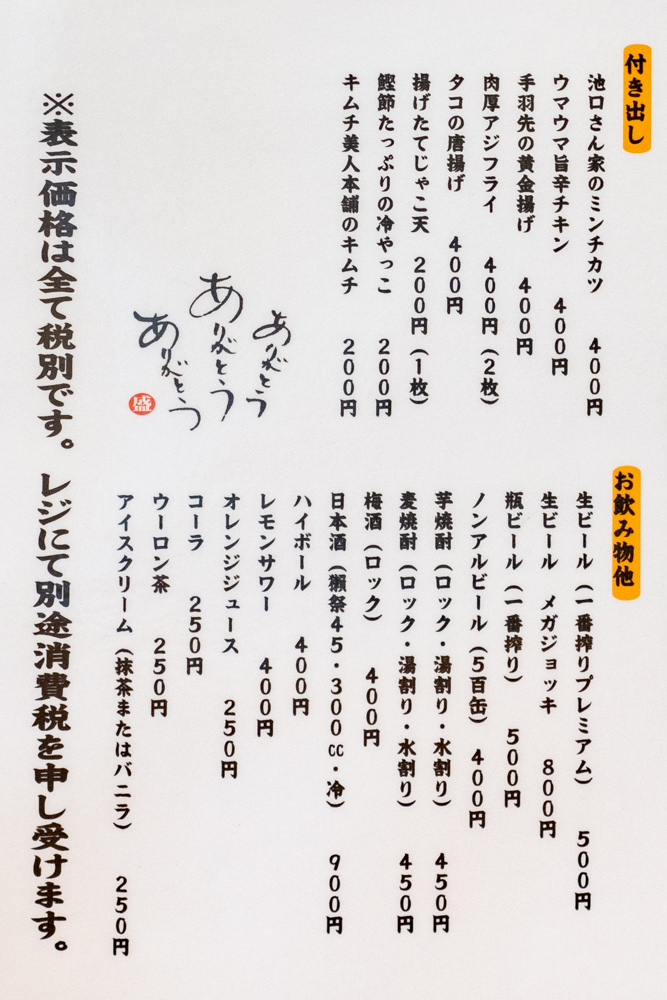 付き出し
池口さん家のミンチカツ 400円
ウマウマ旨辛チキン 400円
手羽先の黄金揚げ 400円
肉厚アジフライ 400円(2枚)
タコの唐揚げ 400円
揚げたてじゃこ天 200円(1枚)
鰹節たっぷりの冷やっこ 200円
キムチ美人本舗のキムチ 200円
ありがとう
ありがとう
ありがとう
盛
お飲み物他
生ビール(一番搾りプレミアム) 500円
生ビール メガジョッキ 800円
瓶ビール(一番搾り) 500円
ノンアルビール(5百缶) 400円
芋焼酎(ロック・湯割り・水割り) 450円
麦焼酎(ロック・湯割り・水割り) 450円
梅酒(ロック) 400円
日本酒(獺祭45・300cc・冷) 900円
ハイボール 400円
レモンサワー 400円
オレンジジュース 250円
コーラ 250円
ウーロン茶 250円
アイスクリーム(抹茶またはバニラ) 250円
※表示価格は全て税別です。レジにて別途消費税を申し受けます。